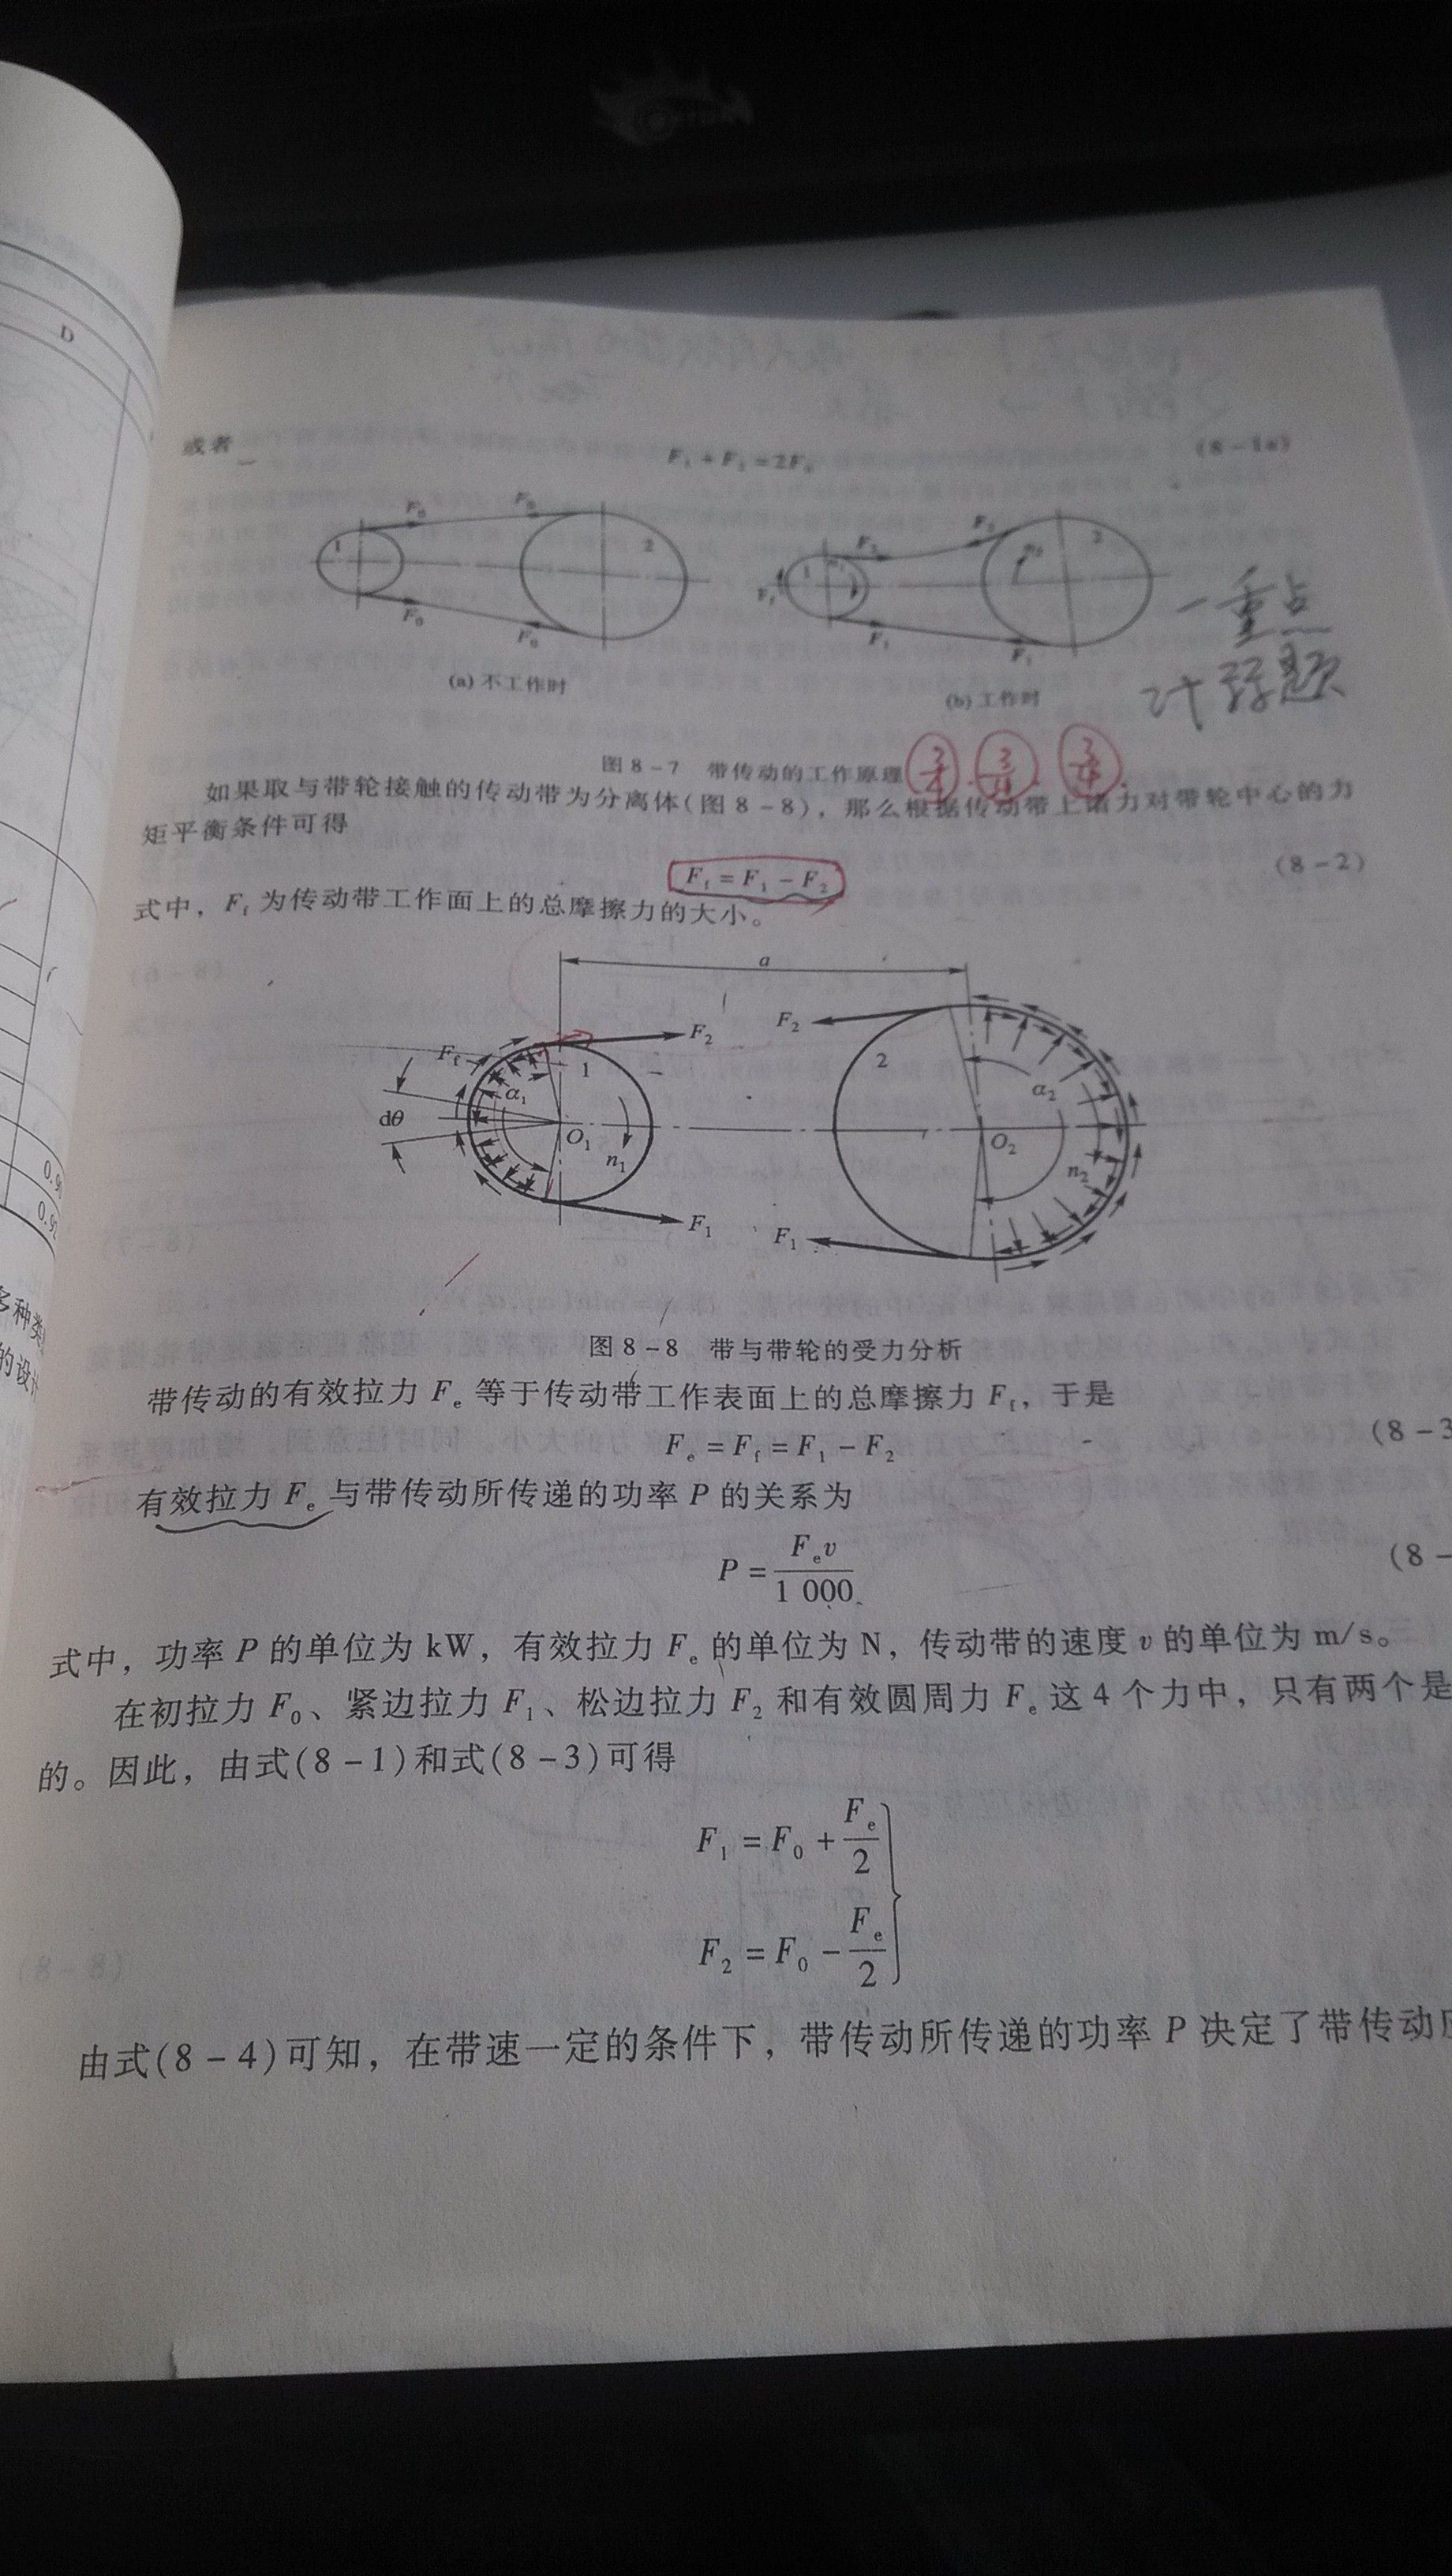 D
或者
F₁ + F₂ = 2F₀
(8-1a)
F₀
F₀
1
2
F₀
F₀
F₂
F₂
1
2
F₁
F₁
(a) 不工作时
(b) 工作时
一重点
计算题
图 8-7 带传动的工作原理
3/4
如果取与带轮接触的传动带为分离体(图 8-8)，那么根据传动带上诸力对带轮中心的力
矩平衡条件可得
F_f = F₁ - F₂
(8-2)
式中，F_f 为传动带工作面上的总摩擦力的大小。
a
F_f
F₂
F₂
1
2
α₁
α₂
dθ
O₁
O₂
n₁
n₂
F₁
F₁
图 8-8 带与带轮的受力分析
带传动的有效拉力 F_e 等于传动带工作表面上的总摩擦力 F_f，于是
F_e = F_f = F₁ - F₂
(8-3
有效拉力 F_e 与带传动所传递的功率 P 的关系为
P = F_e v / 1 000
(8-
式中，功率 P 的单位为 kW，有效拉力 F_e 的单位为 N，传动带的速度 v 的单位为 m/s。
在初拉力 F₀、紧边拉力 F₁、松边拉力 F₂ 和有效圆周力 F_e 这 4 个力中，只有两个是
的。因此，由式(8-1)和式(8-3)可得
F₁ = F₀ + F_e/2
F₂ = F₀ - F_e/2
由式(8-4)可知，在带速一定的条件下，带传动所传递的功率 P 决定了带传动
多种类
的设计